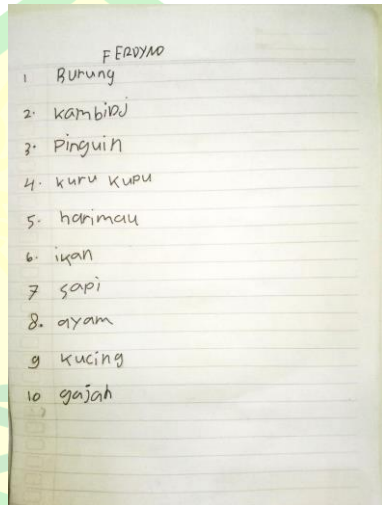 FERDYNO
1 Burung
2. kambiDJ
3. Pinguin
4. kuru kupu
5. harimau
6. ikan
7 sapi
8. ayam
9 kucing
10 gajah